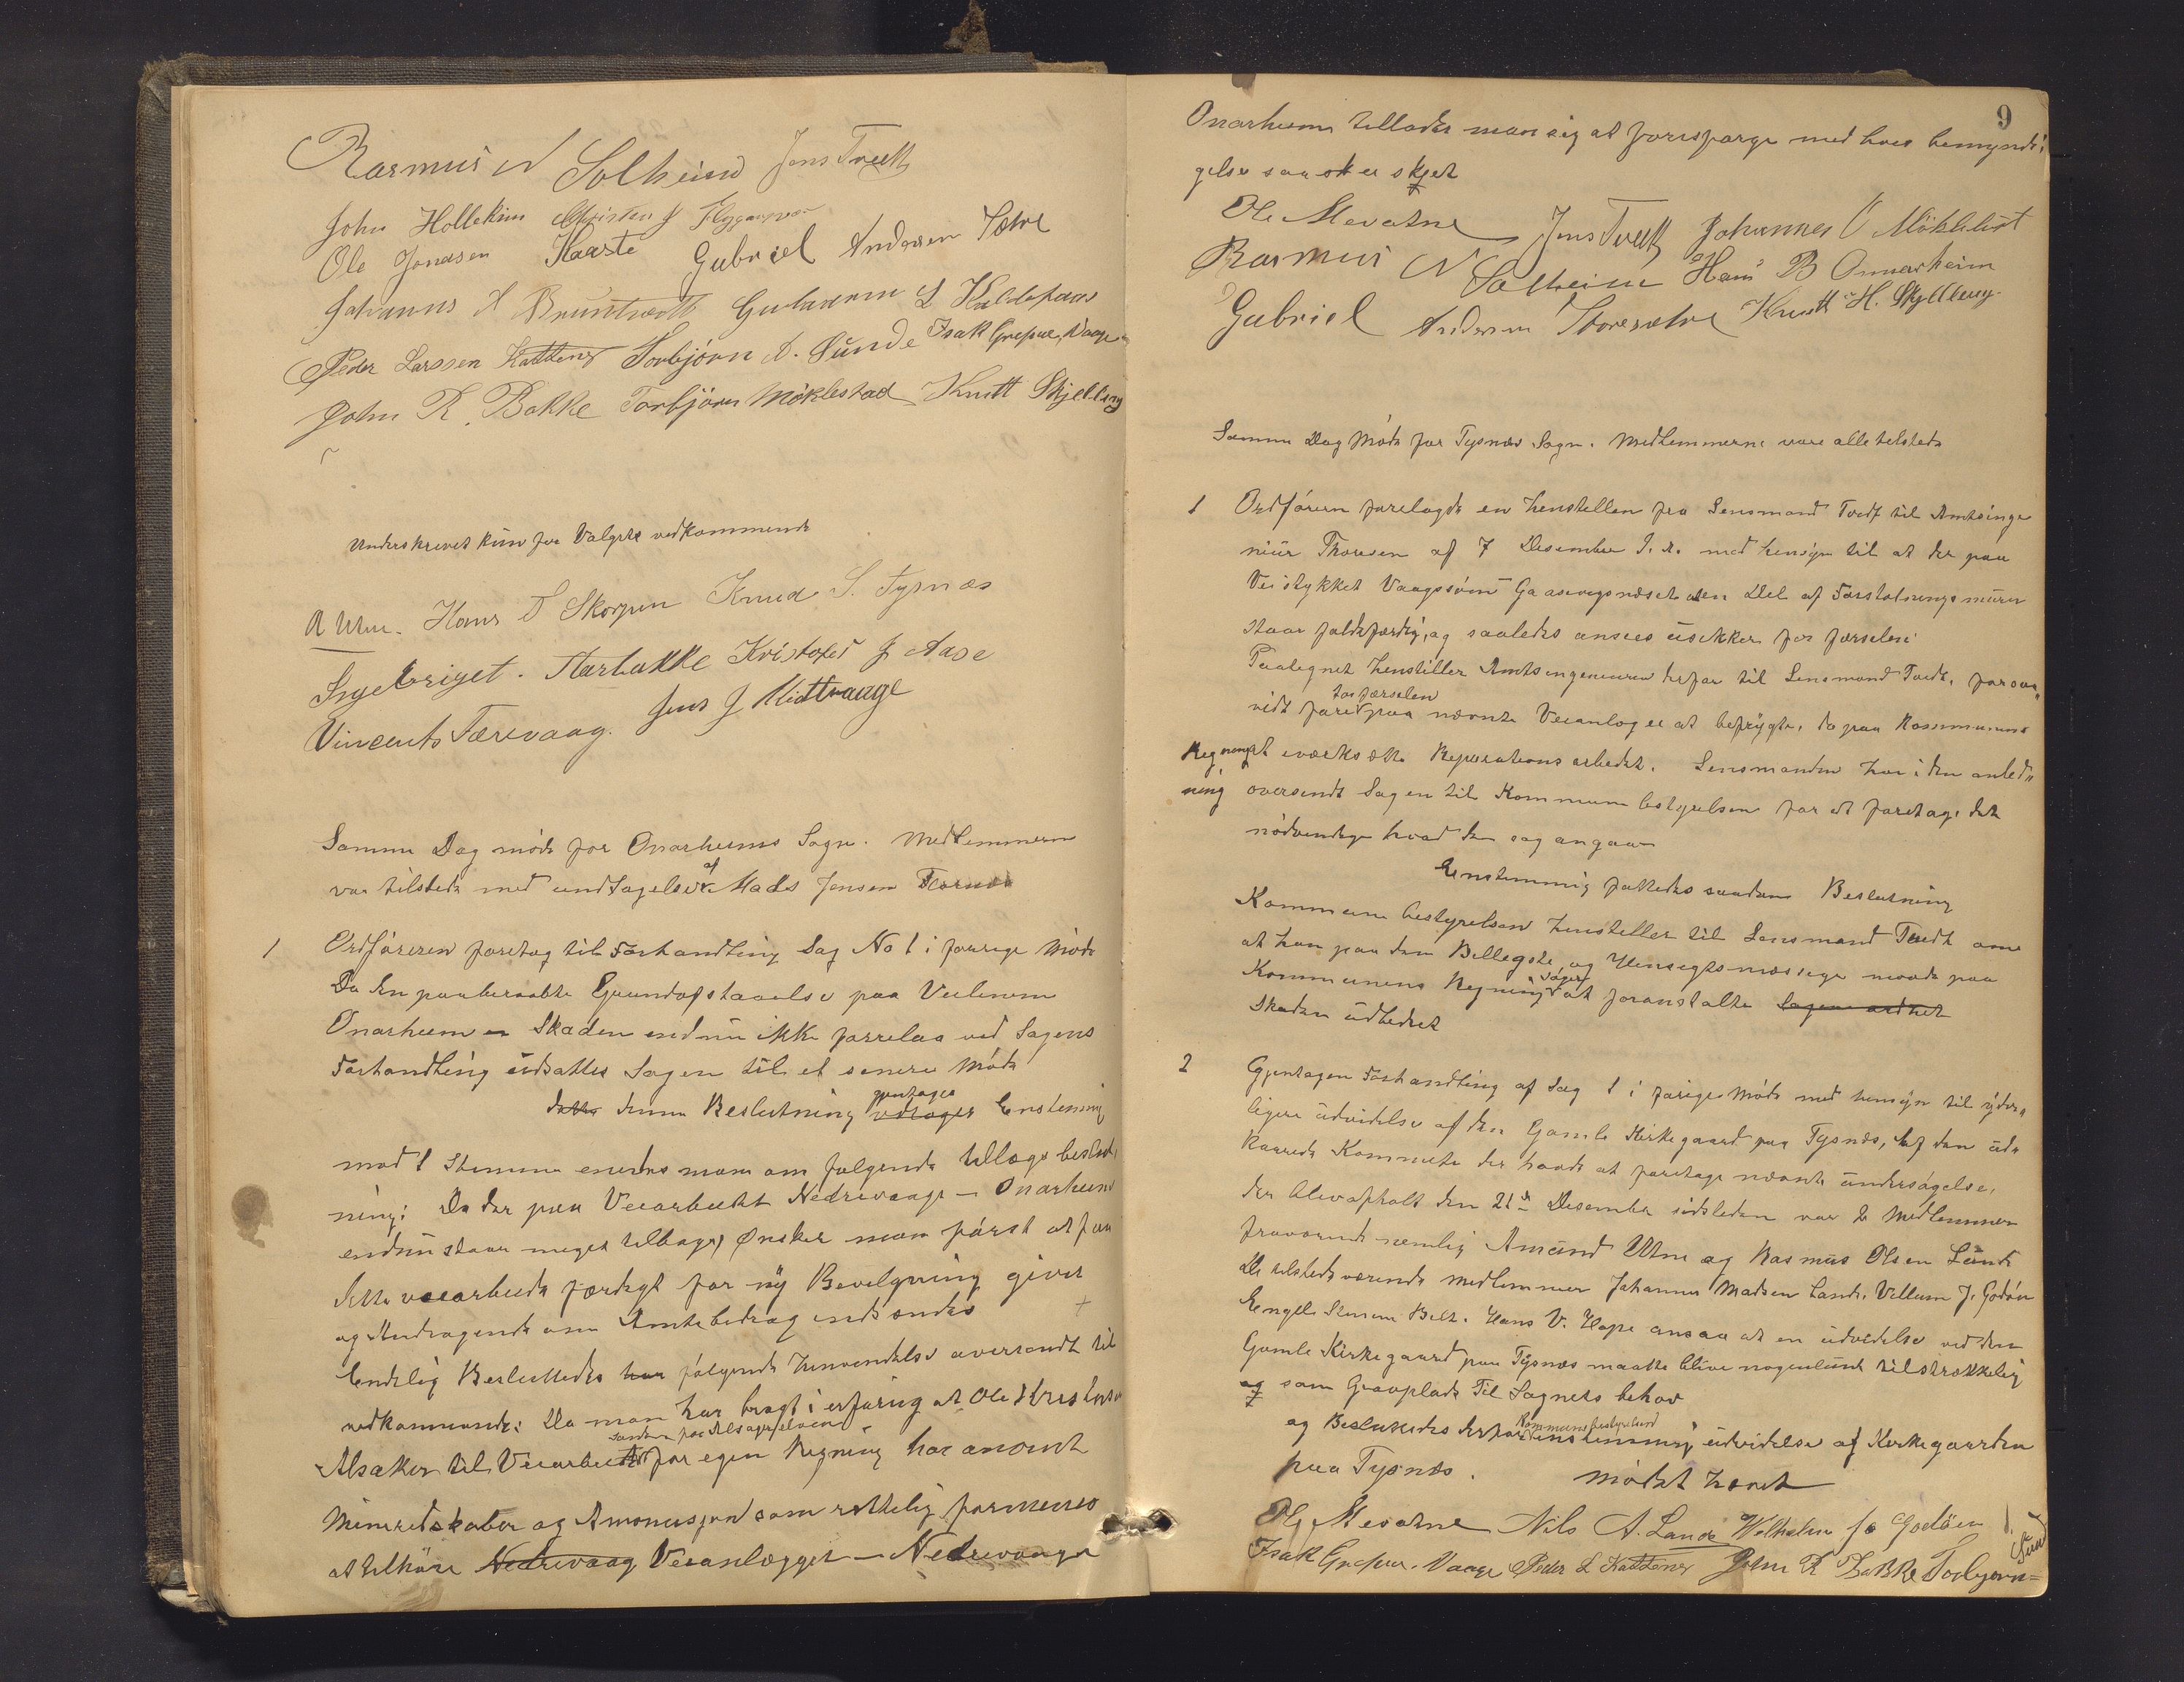 Rasmus N Solheim Jens Tveit
John Hollekim Christen J Flyganvær
Ole Jonasen Haaste Gabriel Andersen Sætre
Johannes H Bruntveth Guttorm L Kaldefoss
Peder Larssen Kattenes Torbjörn A. Sunde Isak Grepne, Vaage
John R. Bakke Torbjörn Möklestad Knutt Skjelleng
Underskrevet kun for Valgets vedkommende
A Utne. Hans D Skorpen Knud S. Tysnæs
Ingebriget. Hartukke Kristofer J Aase
Vincents Færevaag. Jens J Midtvaage
Samme Dag møde for Onarheims Sogn. Medlemmerne
var tilstede med undtagelse af Mads Jensen
1 Ordföreren foretog til Forhandling Sag No 1 i forrige Møde
Da den paaberaabte Grundafstaaelse paa Veilinien
Onarheim er Skaden endnu ikke forrelaa ved Sagens
Forhandling udsattes Sagen til et senere Møde
dette denne Beslutning vedtoges gjentages Enstemmig
mod 1 Stemme enedes man om følgende tillægs beslut„
ning: Da der paa Veiarbeidet Nedrevaage – Onarheim
endnu staar meget tilbage, Ønsker man først at faa
dette veiarbeide færdigt før ny Bevilgning giver
og Andragende om Amtsbidrag indsendes +
Endelig Besluttedes har følgende Henvendelse oversendt til
vedkommende: Da man har bragt i erfaring at Ole Kristensen
Alsaker til Veiarbeidet for egen Regning har anvendt
Mineredskaber og Amonusjon som rettelig formenes
at tilhöre Nedrevaag Veianlægget – Nedrevaage
9
Onarheim tillader man sig at forespørge med hves bemyndi„
gelse saa at er skjet
Ole Mevatne Jens Tveit Johannes O Möklebust
Rasmus N Solheim Hans B Onnarheim
Gabriel Andersen Storesætre Knutt H. Skjelleng
Samme Dag Møde for Tysnæs Sogn. Medlemmerne vare alle tilstede
1 Ordföreren forelagde en henstillen fra Lensmand Tvedt til Amtsinge
niur Thoresen af 7 Desember d. A. med hensyn til at der paa
Veistykket Vaagssöim Gaasevigsnæset en Del af Forstøtningsmuren
staar faldefærdig, og saaledes ansees usikker for færselen
Paategnet henstiller Amtsingeniøren herfor til Lensmand Tvedt, forsaa„
vidt fare for færselen paa nævnte Veianlæg er at befrygte, da paa Kommunens
Regning at iværksætte Reparations arbeidet. Lensmanden har i den anled„
ning oversendt Sagen til Kommunebestyrelsen for at foretage det
nödvendige hvad den sag angaar
Enstemmig fattedes saadan Beslutning
Kommunebestyrelsen henstiller til Lensmand Tvedt om
at han paa den Billegste og Hensigtsmæssige maade paa
Kommunens Regning söger at foranstalte Sagen ordnet
Skaden udbedret
2 Gjentagen Forhandling af Sag 1 i forige Møde med hensyn til yder„
ligere udvidelse af den Gamle Kirkegaard paa Tysnæs, Af den ud„
kaarede Kommite der havde at foretage nævnte undersøgelse,
der blev afholt den 21de Desember sidstleden var 2 Medlemmer
fraværende nemlig Amund Utne og Rasmus Olsen Lunde
De tilstedeværende medlemmer Johannes Madsen Lande, Villum J. Godøen
Engel Stensen Belt. Hans V. Hope ansaa at en udvidelse ved den
Gamle Kirkegaard paa Tysnæs maatte blive nogenlunde tilstrækkelig
og som Gravplads Til Sagnets behov
og Besluttedes derfor Kommunebestyrelsen enstemmig udvidelse af Kirkegaarden
paa Tysnæs. mødet hævet
Ole Mevatne Nils A. Lande Wilhelm Jo Godöen
Isak Grepne. Vaage Peder L Kattenes John R Bakke Torbjørn =
A. Sund